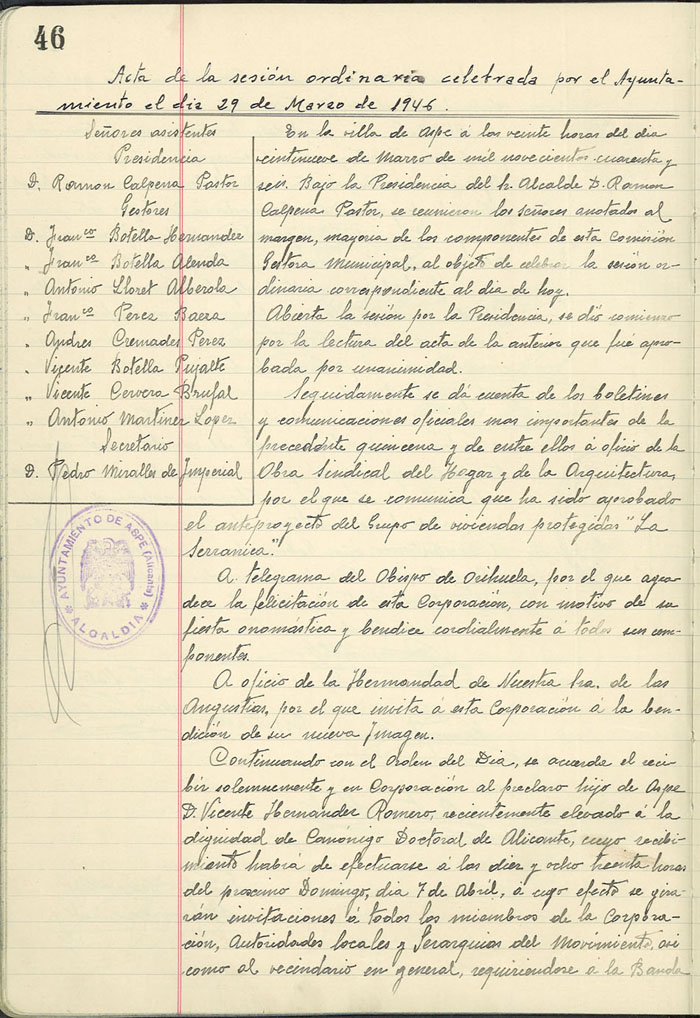 46
Acta de la sesión ordinaria celebrada por el Ayunta-
miento el dia 29 de Marzo de 1946.
Señores asistentes
Presidencia
D. Ramon Calpena Pastor
Gestores
D. Franco Botella Hernandez
" Franco Botella Alenda
" Antonio Lloret Alberola
" Franco Perez Baeza
" Andres Cremades Perez
" Vicente Botella Pujalte
" Vicente Cervera Brufal
" Antonio Martinez Lopez
Secretario
D. Pedro Miralles de Imperial
AYUNTAMIENTO DE ASPE (Alicante)
* ALCALDIA *
En la villa de Aspe á los veinte horas del dia
veintinueve de Marzo de mil novecientos cuarenta y
seis. Bajo la Presidencia del Sr. Alcalde D. Ramon
Calpena Pastor, se reunieron los señores anotados al
margen, mayoria de los componentes de esta Comisión
Gestora Municipal, al objeto de celebrar la sesión or-
dinaria correspondiente al dia de hoy.
Abierta la sesión por la Presidencia, se dió comienzo
por la lectura del acta de la anterior que fué apro-
bada por unanimidad.
Seguidamente se dá cuenta de los boletines
y comunicaciones oficiales mas importantes de la
precedente quincena y de entre ellos á oficio de la
Obra Sindical del Hogar y de la Arquitectura,
por el que se comunica que ha sido aprobado
el anteproyecto del Grupo de viviendas protegidas "La
Serranica".
A telegrama del Obispo de Orihuela, por el que agra-
dece la felicitación de esta Corporación, con motivo de su
fiesta onomástica y bendice cordialmente á todos sus com-
ponentes.
A oficio de la Hermandad de Nuestra Sra. de las
Angustias, por el que invita á esta Corporación á la ben-
dición de su nueva Imagen.
Continuando con el Orden del Dia, se acuerda el reci-
bir solemnemente y en Corporación al preclaro hijo de Aspe
D. Vicente Hernandez Romero, recientemente elevado á la
dignidad de Canónigo Doctoral de Alicante, cuyo recibi-
miento habrá de efectuarse á las diez y ocho treinta horas
del proximo Domingo, dia 7 de Abril, á cuyo efecto se gira-
rán invitaciones á todos los miembros de la Corpora-
ción, Autoridades locales y Jerarquias del Movimiento, asi
como al vecindario en general, requiriendose á la Banda